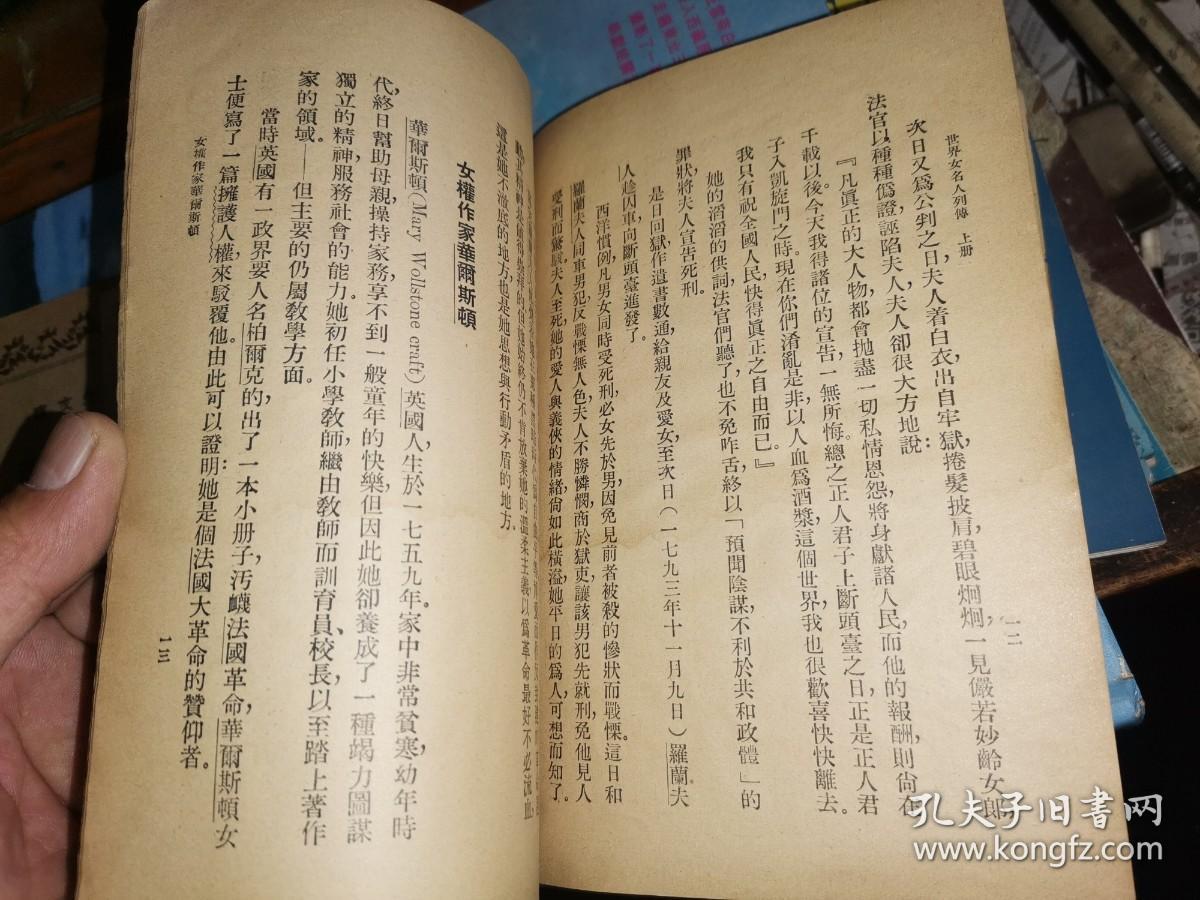 世界女名人列傳 上册
一二
次日又爲公判之日,夫人着白衣,出自牢獄,捲髮披肩,碧眼炯炯,一見儼若妙齡女郎
法官以種種僞證,誣陷夫人,夫人卻很大方地說:
『凡眞正的大人物,都會拋盡一切私情恩怨,將身獻諸人民,而他的報酬,則尙在
千載以後。今天我得諸位的宣告,一無所悔。總之正人君子上斷頭臺之日,正是正人君
子入凱旋門之時。現在你們淆亂是非,以人血爲酒漿,這個世界,我也很歡喜快快離去。
我只有祝全國人民,快得眞正之自由而已。』
她的滔滔的供詞,法官們聽了也不免咋舌,終以「預聞陰謀,不利於共和政體」的
罪狀,將夫人宣告死刑。
是日回獄,作遺書數通,給親友及愛女,至次日(一七九三年十一月九日)羅蘭夫
人趁囚車向斷頭臺進發了。
西洋慣例,凡男女同時受死刑,必女先於男,因免見前者被殺的慘狀而戰慄。這日和
羅蘭夫人同車男犯,反戰慄無人色,夫人不勝憐憫,商於獄吏,讓該男犯先就刑,免他見人
受刑而驚駭。夫人至死,她的愛人與義俠的情緖,尙如此橫溢,她平日的爲人,可想而知了。
仍不肯放棄她的溫柔主義,以爲革命最好不必流血,
這是她不澈底的地方,也是她思想與行動矛盾的地方。
女權作家華爾斯頓
華爾斯頓(Mary Wollstone craft)英國人,生於一七五九年。家中非常貧寒,幼年時
代,終日幫助母親操持家務,享不到一般童年的快樂,但因此她卻養成了一種竭力圖謀
獨立的精神,服務社會的能力。她初任小學敎師,繼由敎師而訓育員、校長,以至踏上著作
家的領域——但主要的仍屬敎學方面。
當時英國有一政界要人名柏爾克的出了一本小册子,汚衊法國革命,華爾斯頓女
士便寫了一篇擁護人權來駁覆他。由此可以證明她是個法國大革命的贊仰者。
女權作家華爾斯頓
一三
孔夫子旧书网
www.kongfz.com